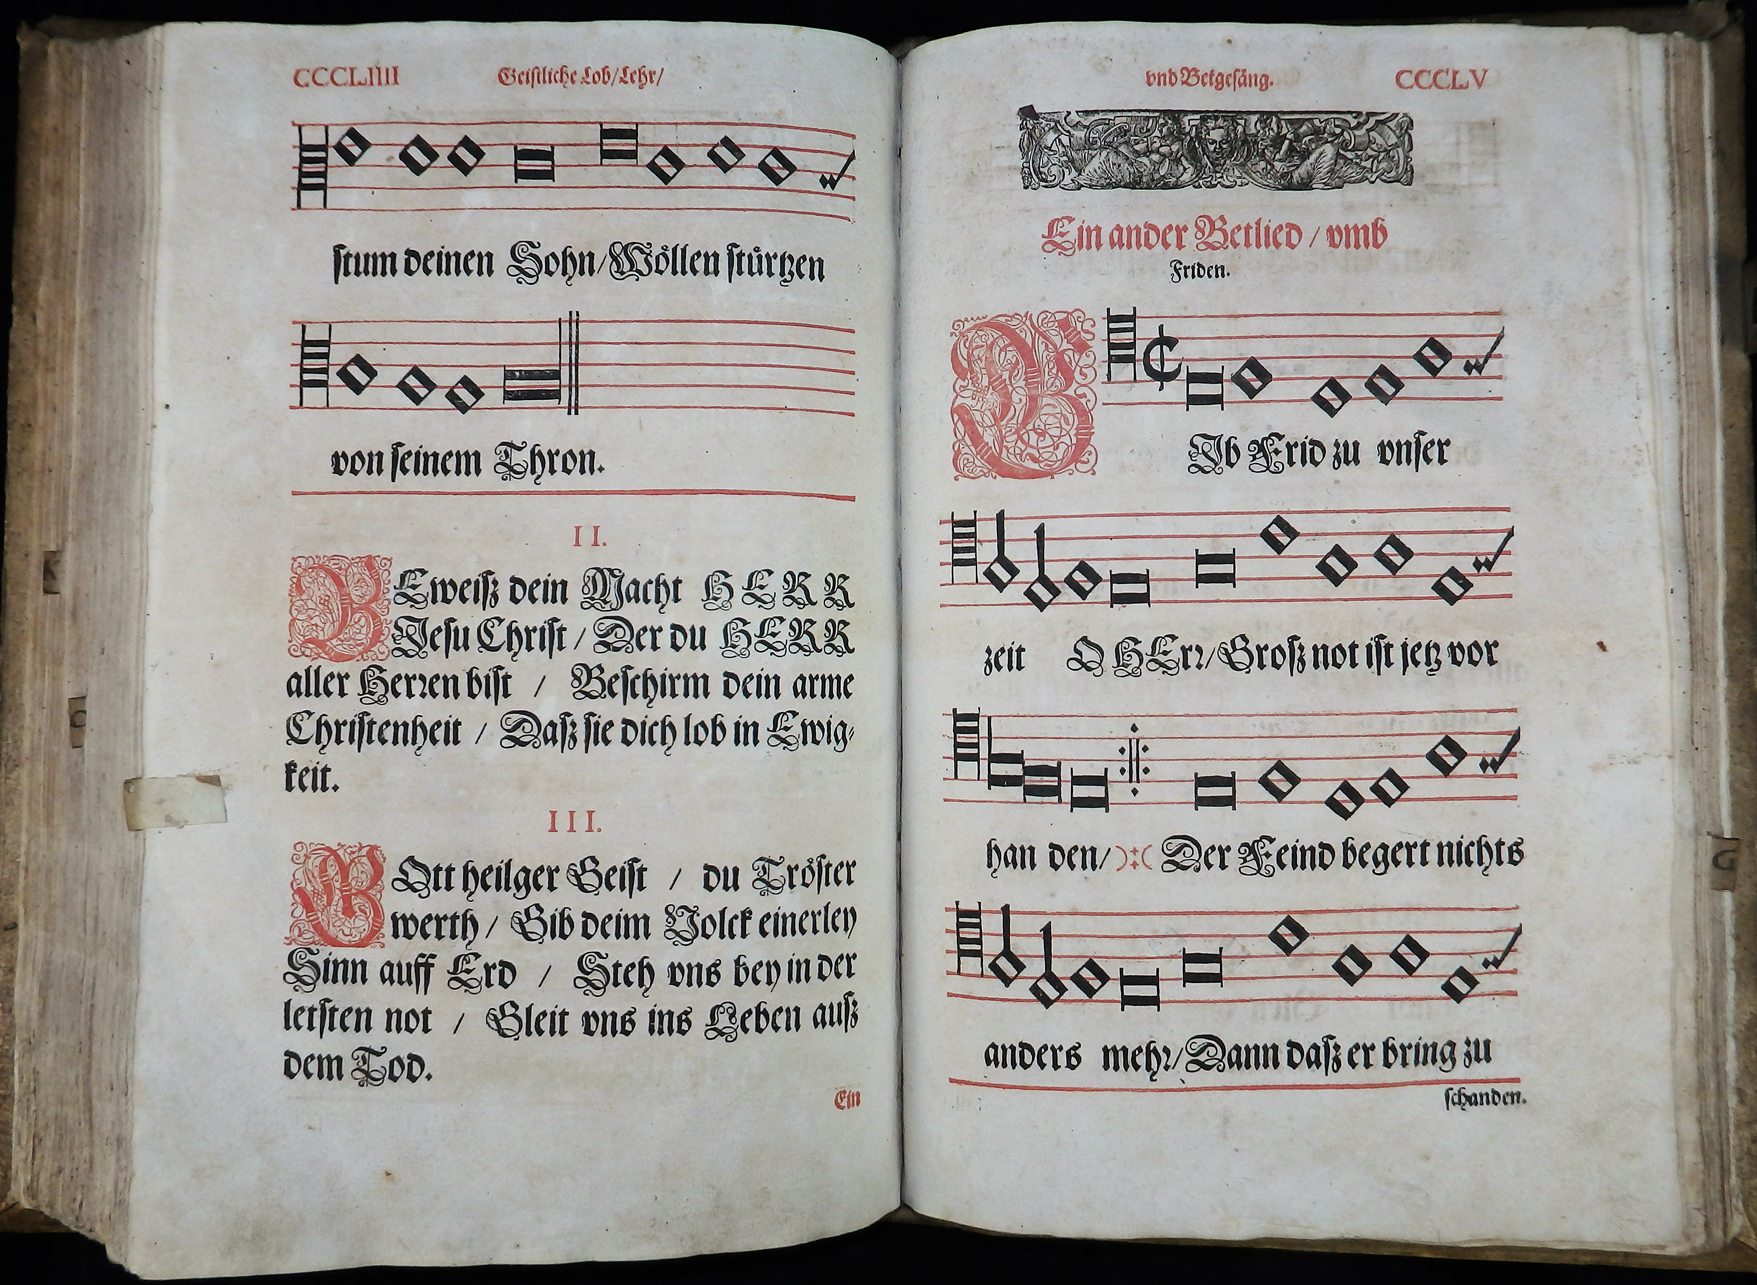 CCCLIIII
Geistliche Lob/Lehr/
stum deinen Sohn/Wöllen stürtzen
von seinem Thron.
II.
BEweisz dein Macht HERR
Jesu Christ / Der du HERR
aller Herꝛen bist / Beschirm dein arme
Christenheit / Dasz sie dich lob in Ewig-
keit.
III.
GOtt heilger Geist / du Tröster
werth / Gib deim Volck einerley
Sinn auff Erd / Steh vns bey in der
letsten not / Gleit vns ins Leben ausz
dem Tod.
Ein
vnd Betgesäng.
CCCLV
Ein ander Betlied / vmb
Friden.
GIb Frid zu vnser
zeit O HErꝛ/Grosz not ist jetz vor
han den/ Der Feind begert nichts
anders mehꝛ/Dann dasz er bring zu
schanden.